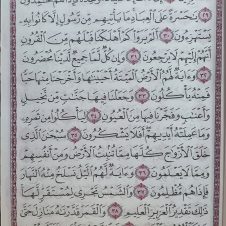 ۞ يَٰحَسْرَةً عَلَى ٱلْعِبَادِ مَا يَأْتِيهِم مِّن رَّسُولٍ إِلَّا كَانُوا۟ بِهِۦ
يَسْتَهْزِءُونَ ٣٠ أَلَمْ يَرَوْا۟ كَمْ أَهْلَكْنَا قَبْلَهُم مِّنَ ٱلْقُرُونِ
أَنَّهُمْ إِلَيْهِمْ لَا يَرْجِعُونَ ٣١ وَإِن كُلٌّ لَّمَّا جَمِيعٌ لَّدَيْنَا مُحْضَرُونَ
٣٢ وَءَايَةٌ لَّهُمُ ٱلْأَرْضُ ٱلْمَيْتَةُ أَحْيَيْنَٰهَا وَأَخْرَجْنَا مِنْهَا حَبًّا
فَمِنْهُ يَأْكُلُونَ ٣٣ وَجَعَلْنَا فِيهَا جَنَّٰتٍ مِّن نَّخِيلٍ
وَأَعْنَٰبٍ وَفَجَّرْنَا فِيهَا مِنَ ٱلْعُيُونِ ٣٤ لِيَأْكُلُوا۟ مِن ثَمَرِهِۦ
وَمَا عَمِلَتْهُ أَيْدِيهِمْ أَفَلَا يَشْكُرُونَ ٣٥ سُبْحَٰنَ ٱلَّذِى
خَلَقَ ٱلْأَزْوَٰجَ كُلَّهَا مِمَّا تُنۢبِتُ ٱلْأَرْضُ وَمِنْ أَنفُسِهِمْ
وَمِمَّا لَا يَعْلَمُونَ ٣٦ وَءَايَةٌ لَّهُمُ ٱلَّيْلُ نَسْلَخُ مِنْهُ ٱلنَّهَارَ
فَإِذَا هُم مُّظْلِمُونَ ٣٧ وَٱلشَّمْسُ تَجْرِى لِمُسْتَقَرٍّ لَّهَا
ذَٰلِكَ تَقْدِيرُ ٱلْعَزِيزِ ٱلْعَلِيمِ ٣٨ وَٱلْقَمَرَ قَدَّرْنَٰهُ مَنَازِلَ حَتَّىٰ